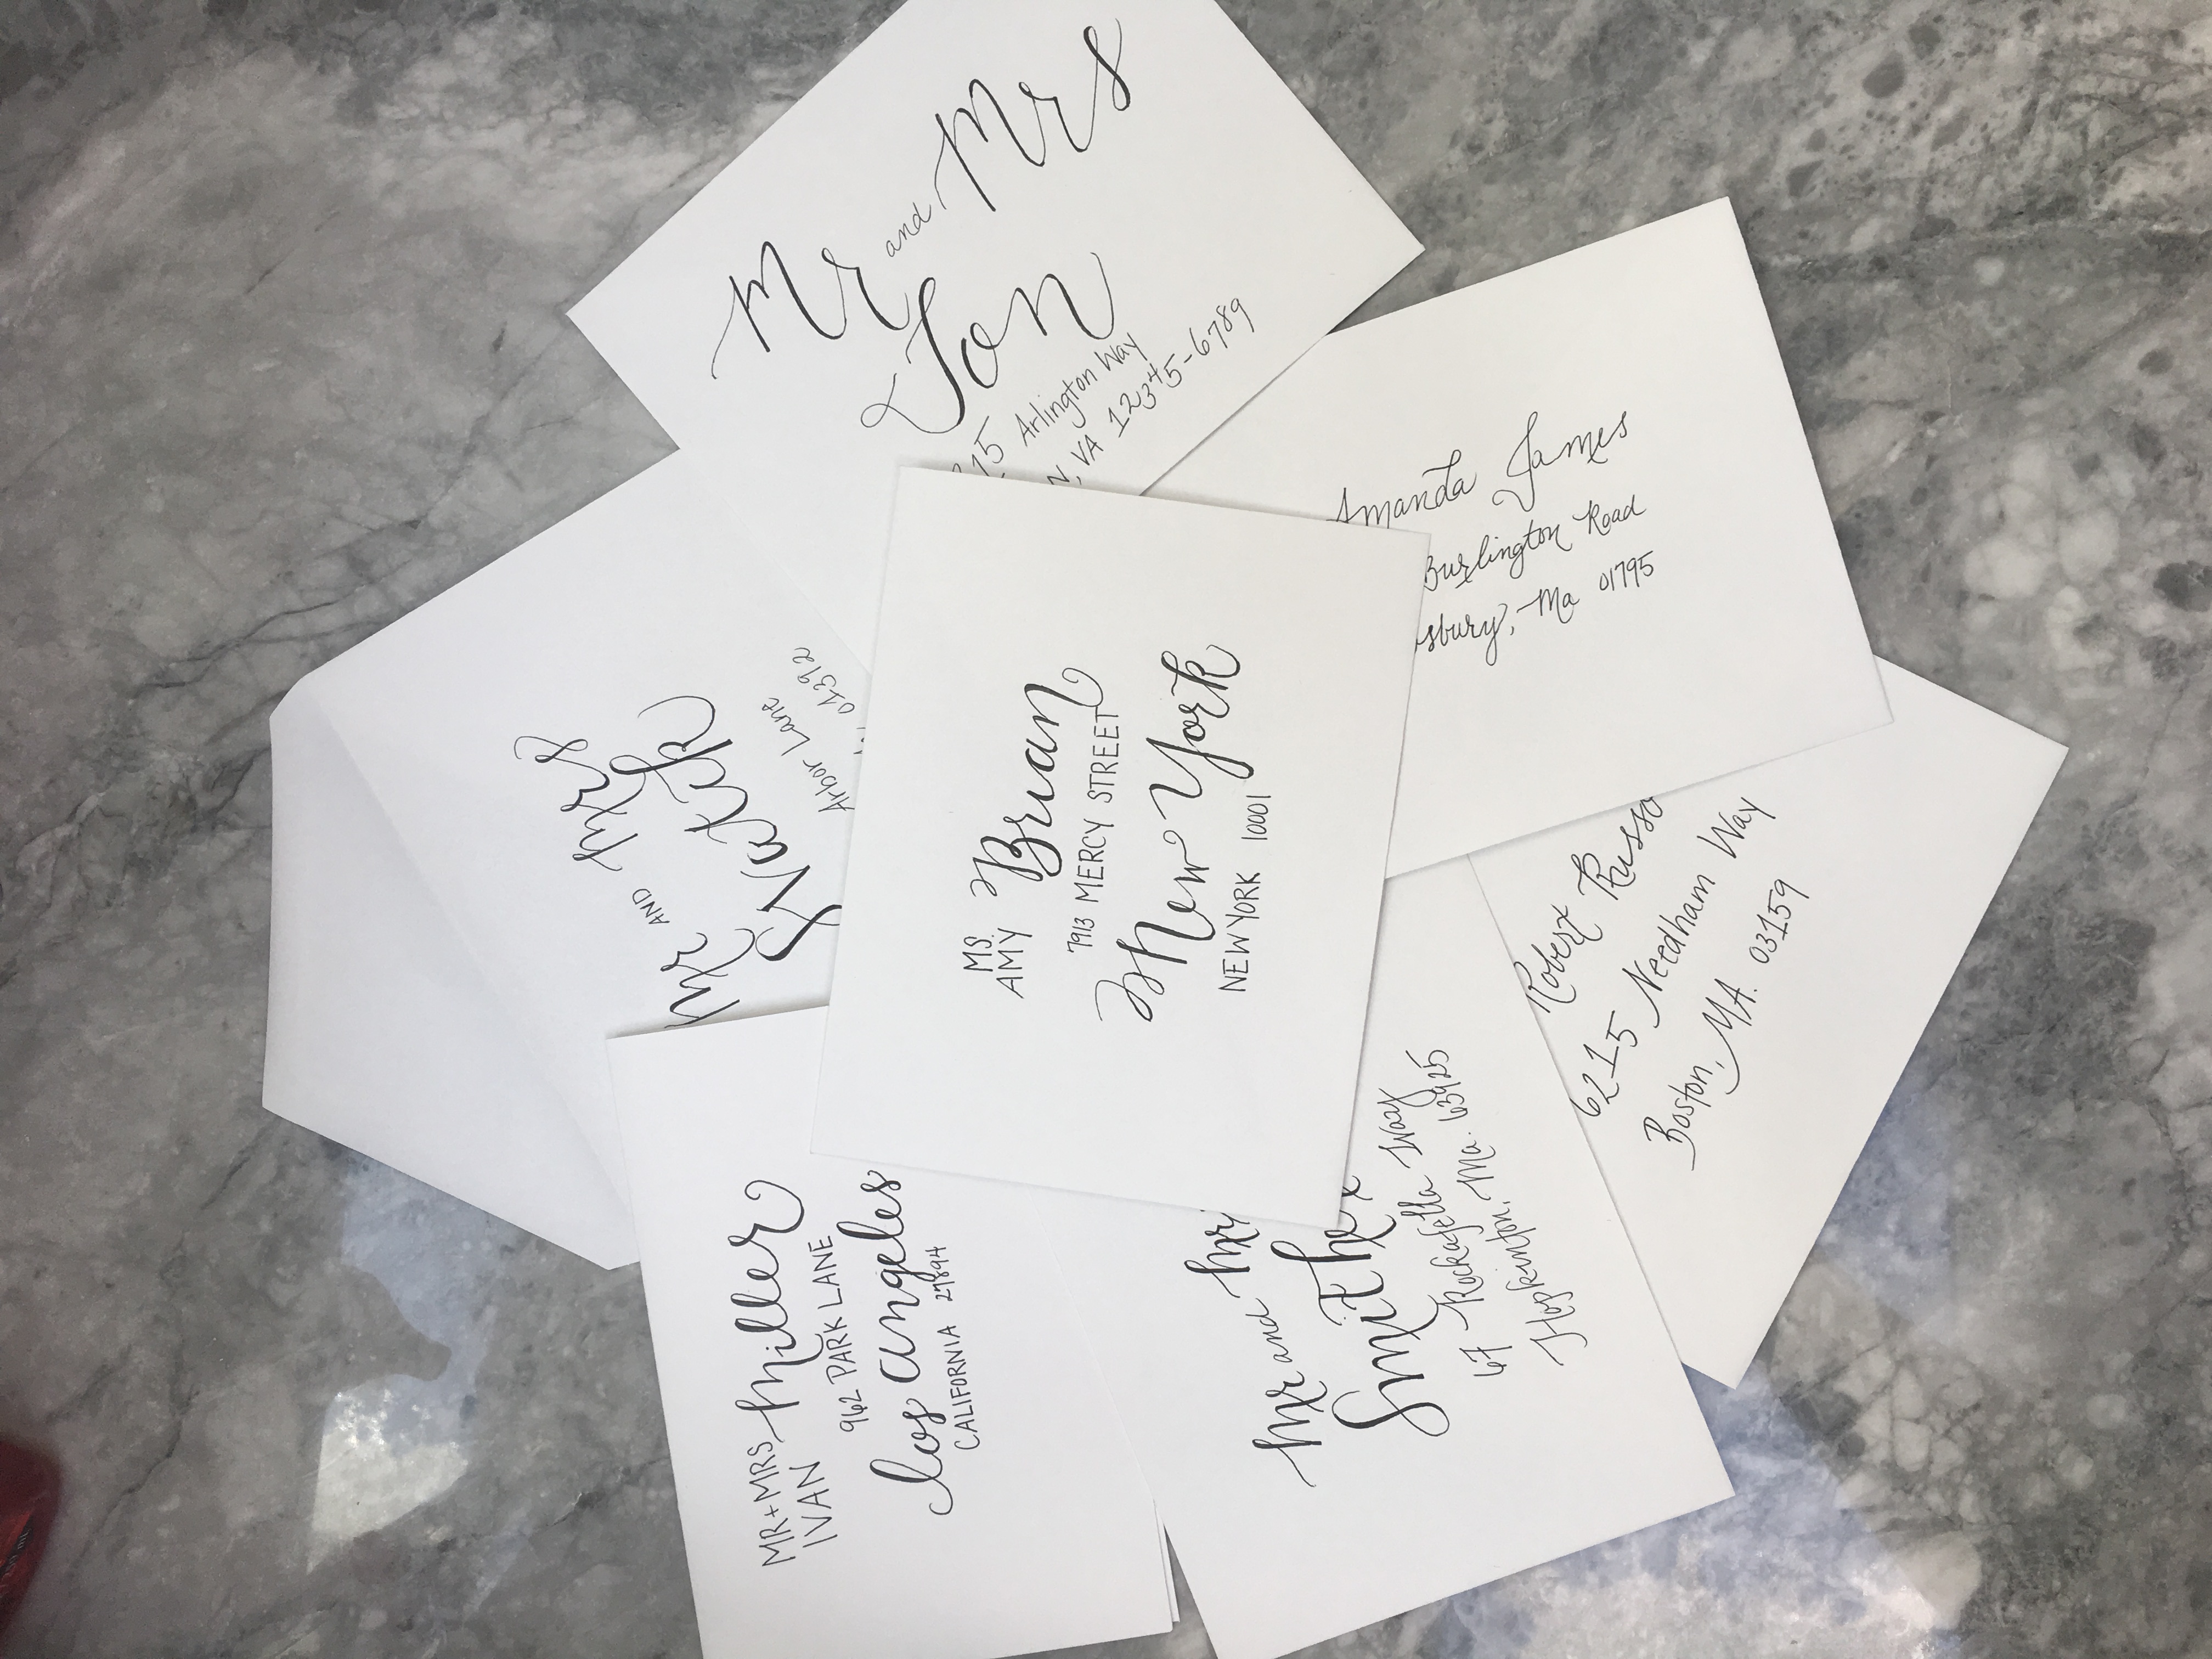 Mr and Mrs
Jon
Arlington Way
VA 12345-6789
Amanda James
Burlington Road
Ma 01795
Mr AND Mrs
Natick
Arbor Lane
01392
MS.
AMY Brian
7913 MERCY STREET
New York
NEW YORK 10001
Robert Russo
6215 Needham Way
Boston, MA. 03159
MR + MRS
IVAN Miller
962 PARK LANE
los angeles
CALIFORNIA
Mr and
Smither
67 Rockafella Way
Hopkinton, Ma. 63925